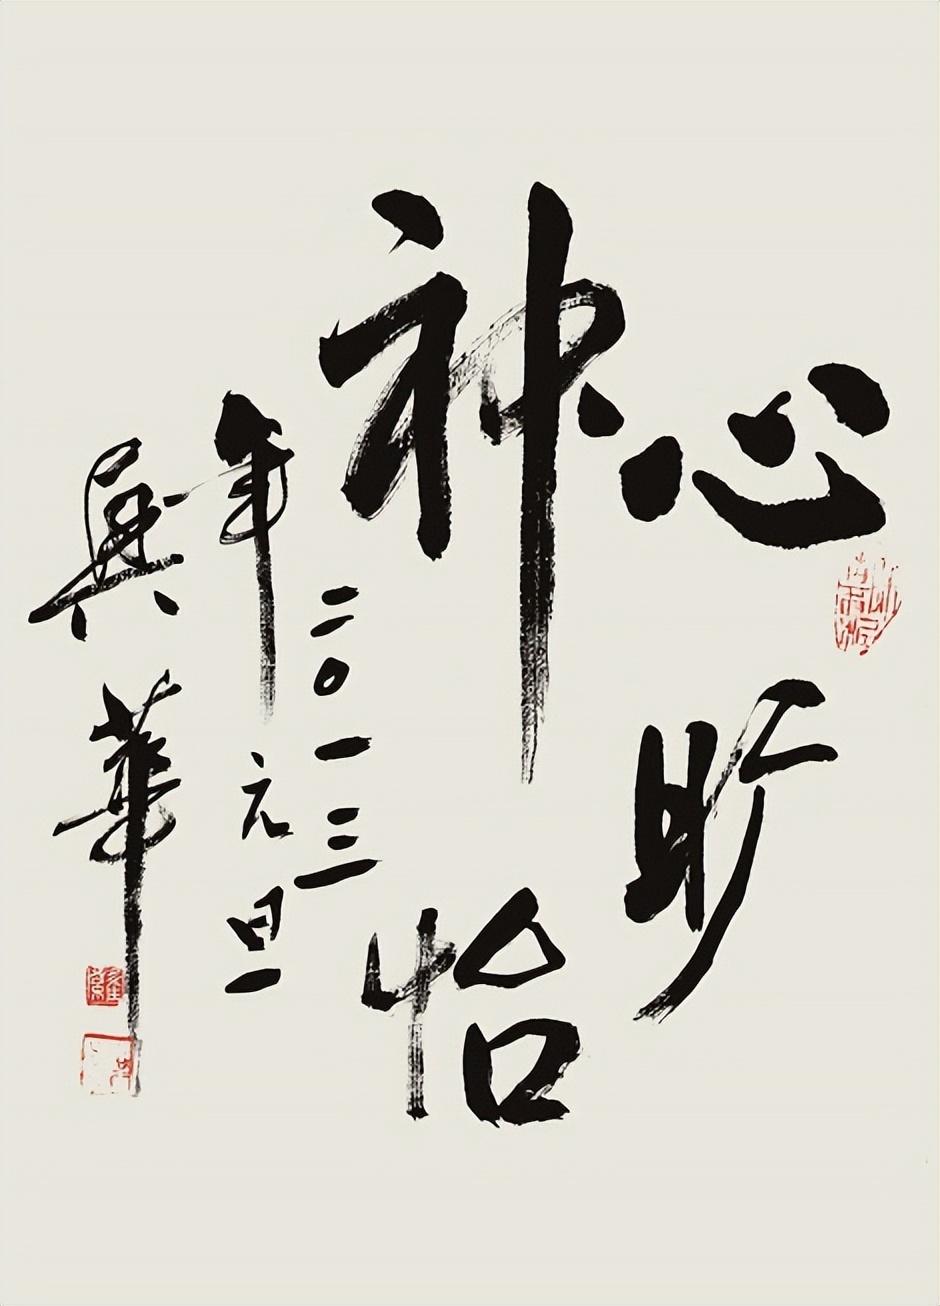 心旷
神怡
二〇一三
年元旦
華